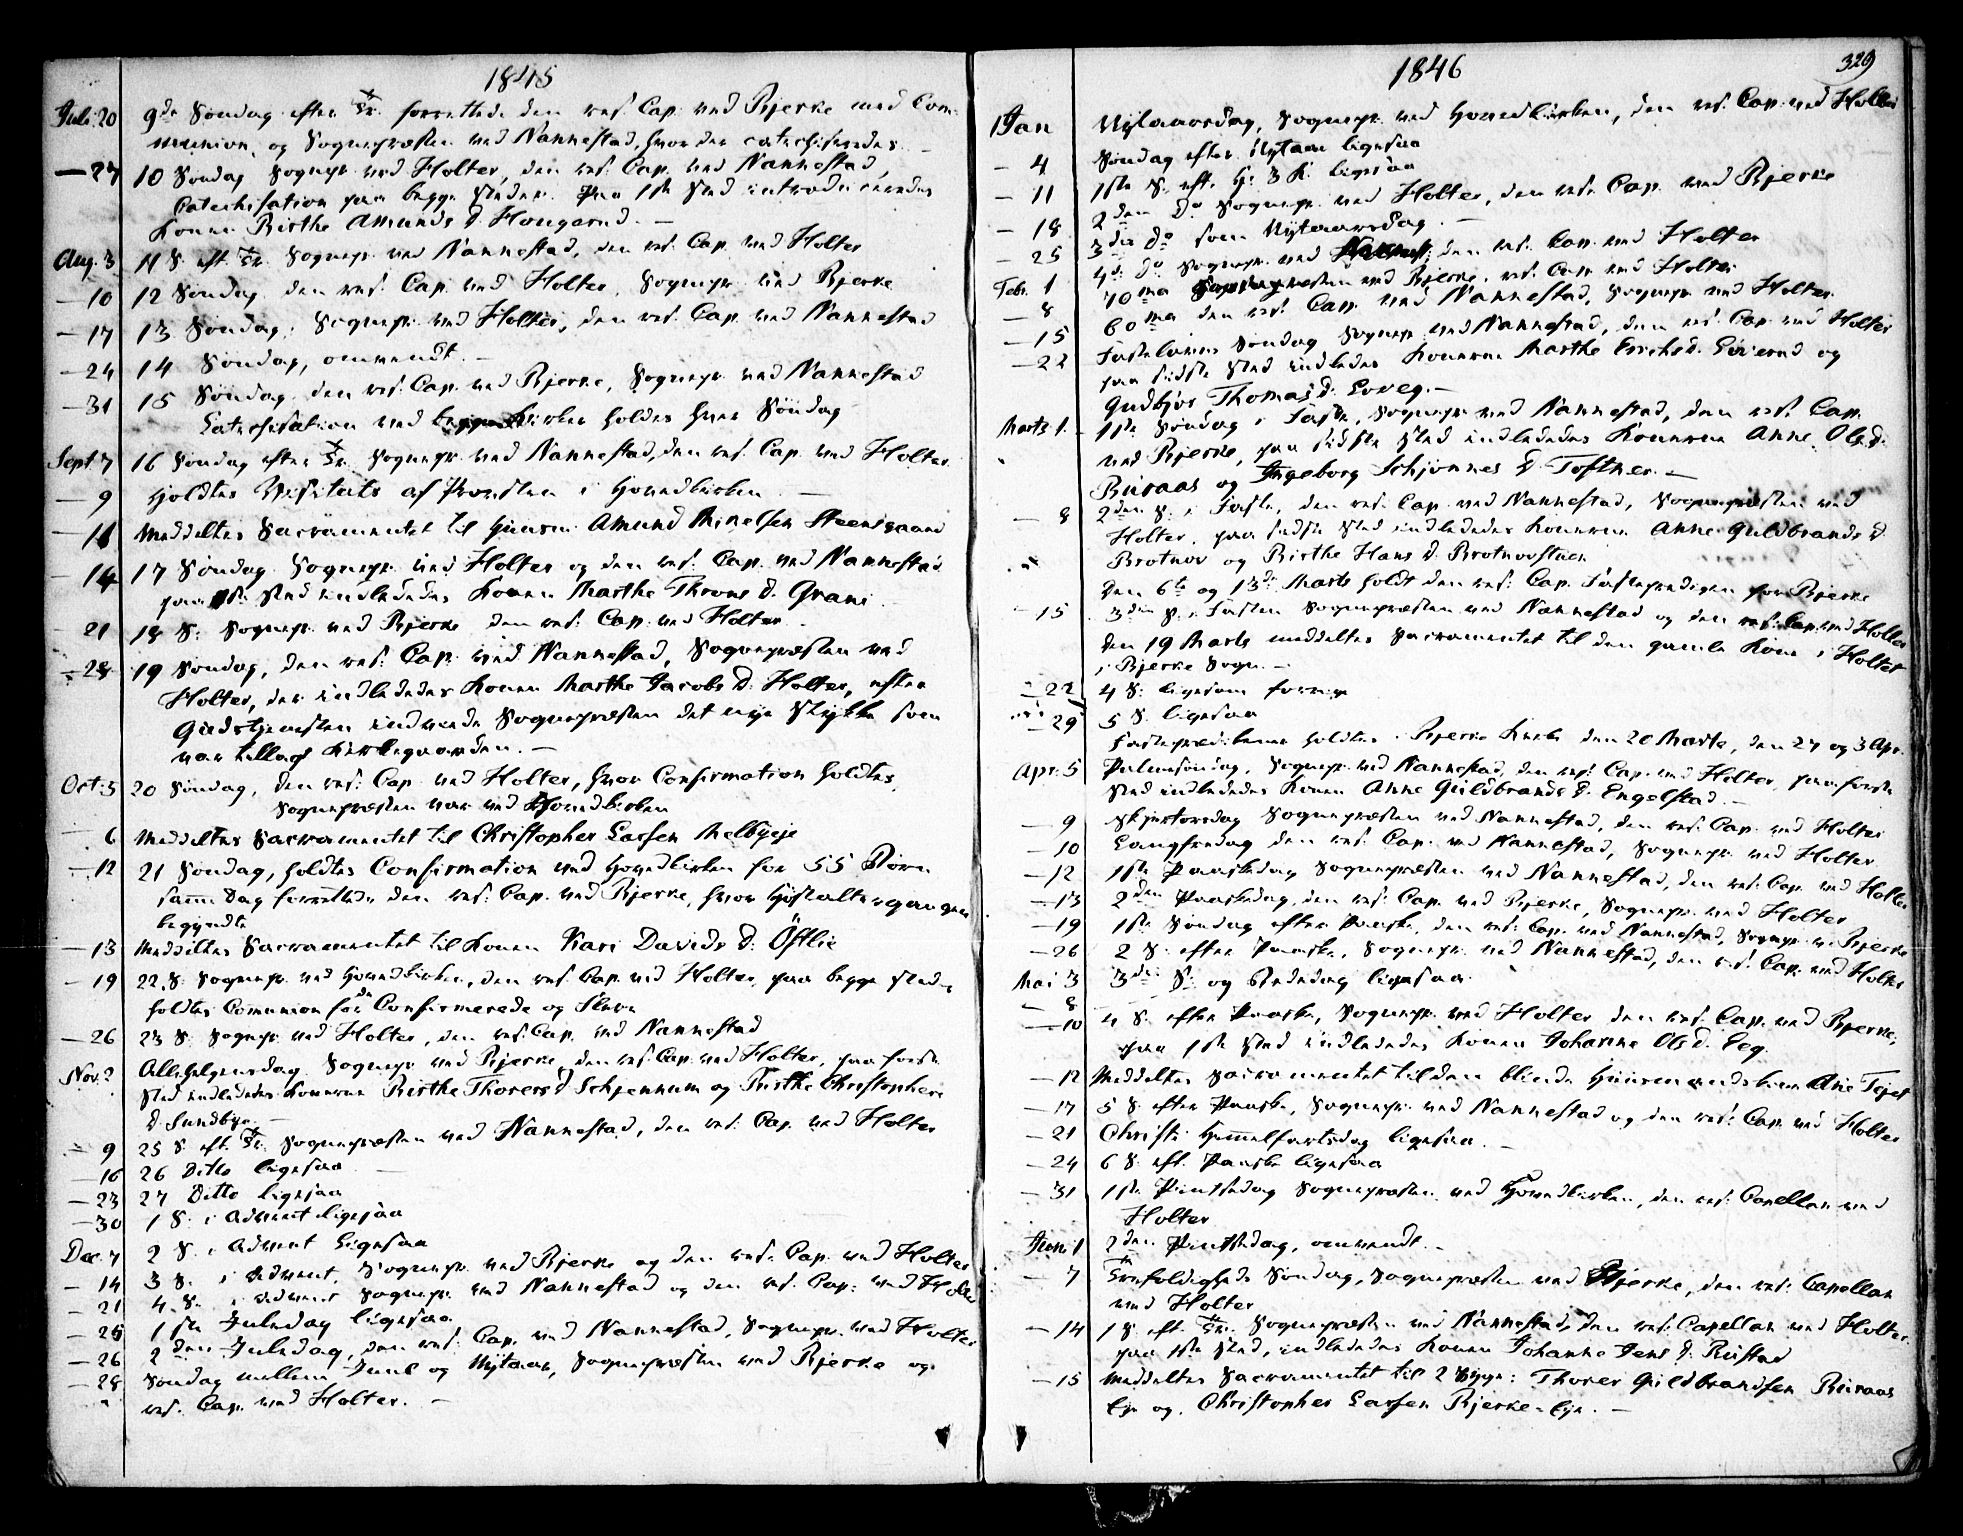 1845
Juli 20 9de Søndag efter Tr. forrettede den res. Cap. ved Bjerke med Com-
munion, og Sognepræsten ved Nannestad, hvor der catechiseredes. –
— 27 10 Søndag Sognepr. ved Holter, den res. Cap. ved Nannestad,
Catechisation paa begge Steder. Paa 1ste Sted introduceredes
Konen Birthe Amunds D. Hougerud. –
Aug. 3 11 S. eft. Tr. Sognepr. ved Nannestad, den res. Cap. ved Holter
— 10 12 Søndag den res. Cap. ved Holter, Sognepr. ved Bjerke
— 17 13 Søndag, Sognepr. ved Holter, den res. Cap. ved Nannestad
— 24 14 Søndag, omvendt. –
— 31 15 Søndag den res. Cap. ved Bjerke, Sognepr. ved Nannestad
Catechisation ved begge Kirker holdes hver Søndag
Sept. 7 16 Søndag efter Tr. Sognepr. ved Nannestad, den res. Cap. ved Holter.
— 9 Holdtes Visitats af Provsten i Hovedkirken –
— 11 Meddeltes Sacramentet til Huusm. Amund Mikelsen Steensgaard
— 14 17 Søndag Sognepr. ved Holter og den res. Cap. ved Nannestad
paa 1ste Sted indledes Konen Marthe Throns D. Grani
21 18 S: Sognepr. ved Bjerke den res. Cap. ved Holter.
— 28 19 Søndag, den res. Cap. ved Nannestad, Sognepræsten ved
Holter, der indlededes Konen Marthe Jacobs D. Holter, efter
Gudstjenesten indviede Sognepræsten det nye Stykke som
var tillagt Kirkegaarden. –
Oct. 5 20 Søndag, den res. Cap. ved Holter, hvor Confirmation holdtes,
Sognepræsten var ved Hovedkirken
6 Meddeltes Sacramentet til Christopher Larsen Melbyeje
— 12 21 Søndag, holdtes Confirmation ved Hovedkirken for 55 Børn
samme Dag forrettede den res. Cap. ved Bjerke, hvor Høstaltergangen
begyndte
— 13 Meddeltes Sacramentet til Konen Kari Davids D. Østlie
— 19 22. S. Sognepr. ved Hovedkirken, den res. Cap. ved Holter, paa begge Steder
holdtes Communion for de Confirmerede og Flere
— 26 23 S. Sognepr. ved Holter, den res. Cap. ved Nannestad
Nov. 2 Allehelgensdag Sognepr. ved Bjerke, den res. Cap. ved Holter, paa første
Sted indlededes Konerne Birthe Thorers D. Schjennum og Birthe Christophers
D. Sundbye. –
— 9 25 S. eft. Tr. Sognepræsten ved Nannestad, den res. Cap. ved Holter
— 16 26 Ditto ligesaa –
— 23 27 Ditto ligesaa
— 30 1 S. i Advent ligesaa
Dec. 7 2 S. i Advent ligesaa
— 14 3 S. i Advent, Sognepr. ved Bjerke og den res. Cap. ved Holter
— 21 4. S. i Advent Sognepr. ved Nannestad og den res. Cap. ved Holter
— 25 1ste Juledag ligesaa
— 26 2den Juledag, den res. Cap. ved Nannestad, Sognepr. ved Holter
— 28 Søndag mellem Juul og Nytaar, Sognepræsten ved Bjerke og
res. Cap. ved Holter. –
1846
329
1 Jan Nytaarsdag, Sognepr. ved Hovedkirken, den res. Cap. ved Holter
— 4 Søndag efter Nytaar ligesaa
— 11 1ste S. eft. H. 3 K. ligesaa
— 18 2den Do Sognepr. ved Holter, den res. Cap. ved Bjerke
— 25 3die Do som Nytaarsdag. –
Febr. 1 4de Do Sognepr. ved Nannest., den res. Cap. ved Holter
— 8 70ma Sognepræsten ved Bjerke, res. Cap. ved Holter
— 15 60ma den res. Cap. ved Nannestad, Sognepr. ved Holter.
— 22 Fastelavns Søndag Sognepr. ved Nannestad, den res. Cap. ved Holter
paa sidste Sted indledes Konerne Marthe Erichs D. og
Gudbjør Thomas D. Loveg. –
Marts 1. 1ste Søndag i Faste, Sognepr. ved Nannestad, den res. Cap.
ved Bjerke, paa sidste Sted indlededes Konerne Anne Ols D.
Buraas og Ingeborg Schjønnes D. Toftner. –
— 8 2den S. i Faste, den res. Cap. ved Nannestad, Sognepræsten ved
Holter, paa sidste Sted indlededes Konerne Anne Guldbrands D.
Brotnov og Birthe Hans D. Brotnovstuen
Den 6te og 13de Marts holdt den res. Cap. Fasteprediken paa Bjerke
— 15 3die S. i Fasten Sognepræsten ved Nannestad og den res. Cap. ved Holter
Den 19 Marts meddeltes Sacramentet til den gamle Kone i Holter
i Bjerke Sogn. –
— 22 4 S. ligesom forrige
— 29 5 S. ligesaa
Fasteprædikener holdtes i Bjerke Kirke den 20 Marts, den 27 og 3 Apr.
Apr. 5 Palmesøndag, Sognepr. ved Nannestad, den res. Cap. ved Holter, paa første
Sted indlededes Konen Anne Guldbrands D. Engelstad. –
— 9 Skjertorsdag Sognepræsten ved Nannestad, den res. Cap. ved Holter
— 10 Langfredag den res. Cap. ved Nannestad, Sognepr. ved Holter
— 12 1ste Paaskedag Sognepræsten ved Nannestad, den res. Cap. ved Holter
— 13 2den Paaskedag, den res. Cap. ved Bjerke, Sognepr. ved Holter
— 19 1ste Søndag efter Paaske, den res. Cap. ved Nannestad, Sognepr. v. Bjerke
— 26 2 S. efter Paaske, Sognepr. ved Nannestad, den res. Cap. ved Holter
Mai 3 3die S. og Bededag ligesaa
— 8
— 10 4 S. efter Paaske, Sognepr. ved Holter den res. Cap. ved Bjerke,
paa 1ste Sted indledes Konen Johanne Ols D. Eeg.
— 12 Meddeltes Sacramentet til den blinde Huusmandskone Ane
— 17 5 S. efter Paaske, Sognepr. ved Nannestad og den res. Cap. ved Holter
— 21 Christi Himmelfartsdag ligesaa. –
— 24 6 S. eft. Paaske ligesaa
— 31 1ste Pintsedag Sognepræsten ved Hovedkirken, den res. Capellan ved
Holter
Juni 1 2den Pintsedag, omvendt. –
— 7 Trefoldigheds Søndag, Sognepræsten ved Bjerke, den res. Capellan
ved Holter
— 14 1 S. eft. Tr. Sognepræsten ved Nannestad, den res. Capellan ved Holter.
paa 1ste Sted, indledes Konen Johanne Jens D. Rustad
— 15 Meddeltes Sacramentet til 2 Syge: Thorer Guldbrandsen Buraas
Eje og, Christopher Larsen Bjerke-Eje. –